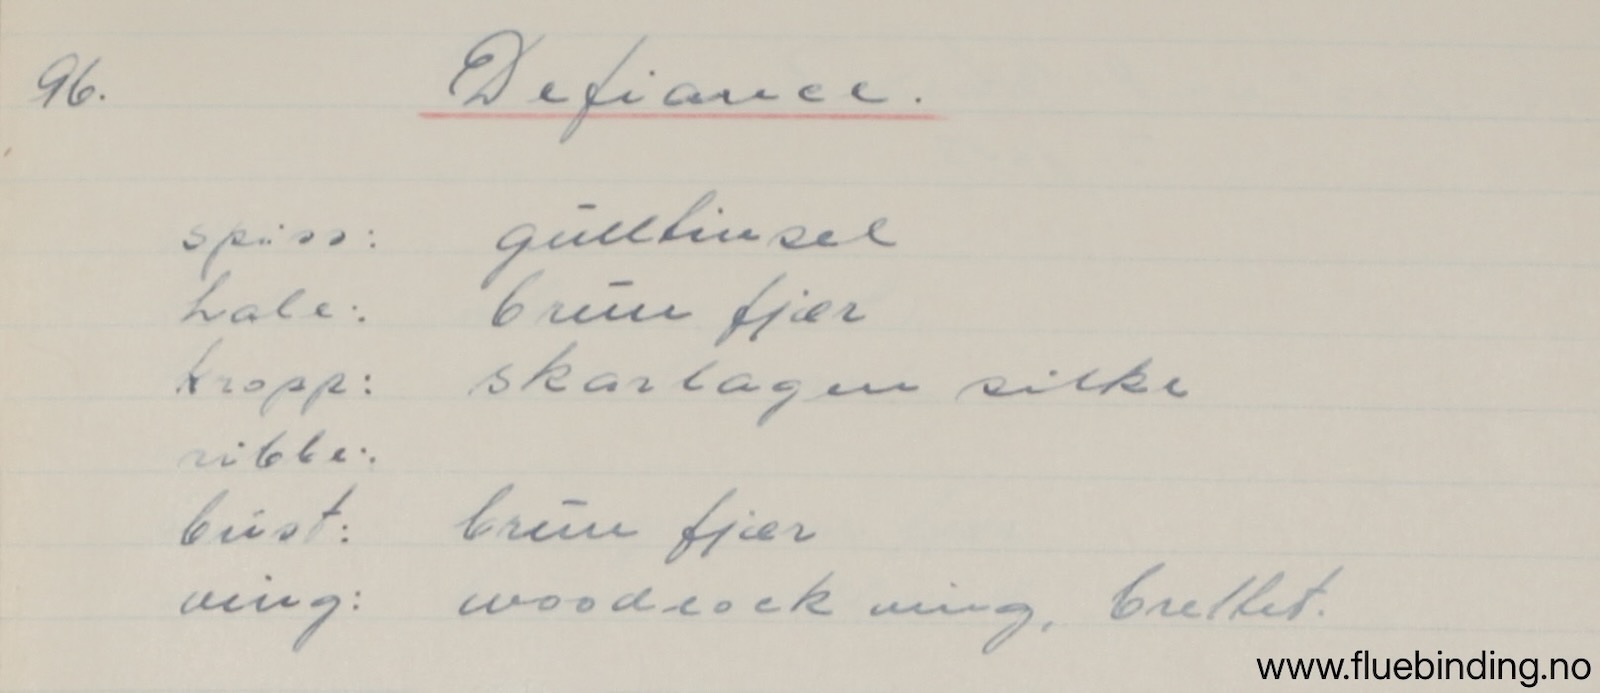 96. Defiance.
spiss: gulltinsel
hale: brun fjær
kropp: skarlagen silke
ribbe:
bust: brun fjær
ving: woodcock ving, brettet.
www.fluebinding.no